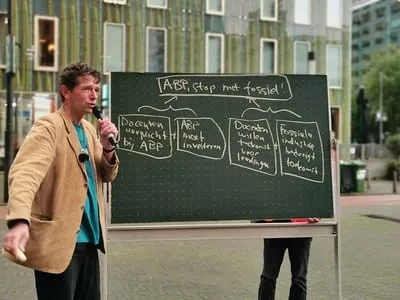 ABP, stop met fossiel!
Docenten
verplicht
bij ABP
+
ABP
moet
investeren
Docenten
willen
toekomst
voor
leerlingen
+
Fossiele
industrie
bedreigt
toekomst